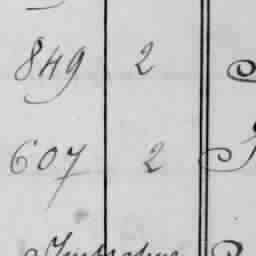 849 2
607 2